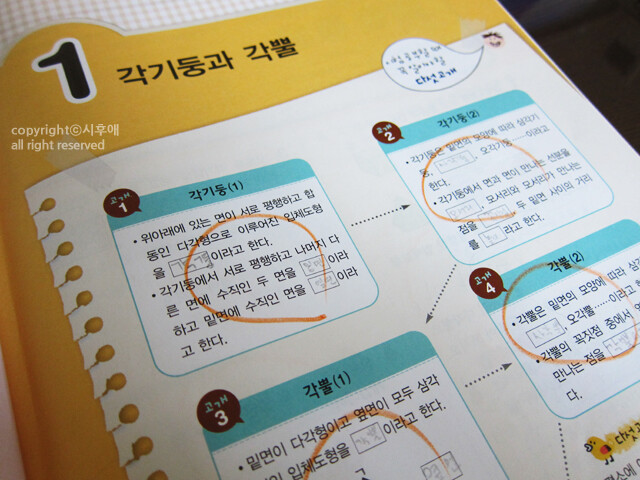 1 각기둥과 각뿔
꼭 알아야 할
다섯고개
copyright©시후애
all right reserved
고개
1
각기둥(1)
• 위아래에 있는 면이 서로 평행하고 합
동인 다각형으로 이루어진 입체도형
을 각기둥 이라고 한다.
• 각기둥에서 서로 평행하고 나머지 다
른 면에 수직인 두 면을 밑면 이라
하고 밑면에 수직인 면을 옆면 이라
고 한다.
고개
2
각기둥(2)
• 각기둥은 밑면의 모양에 따라 삼각기
둥, 오각기둥……이라고
한다.
• 각기둥에서 면과 면이 만나는 선분을
, 모서리와 모서리가 만나는
점을 두 면 사이의 거리
를 라고 한다.
고개
3
각뿔(1)
• 밑면이 다각형이고 옆면이 모두 삼각
입체도형을 각뿔 이라고 한다.
고개
4
각뿔(2)
• 각뿔은 밑면의 모양에 따라 삼각
, 오각뿔……이라고
• 각뿔의 꼭짓점 중에서
만나는 점을
다.
다섯고